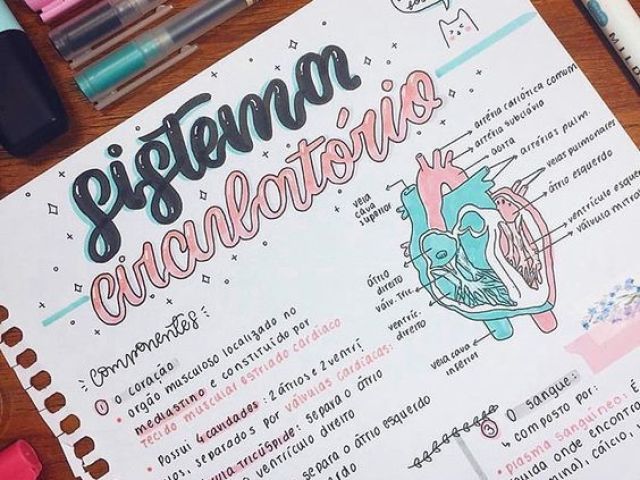 sistema
circulatório
artéria cariótica comum
artéria subclávia
aorta
artérias pulm.
veias pulmonares
átrio esquerdo
ventrículo esque
válvula mitral
veia cava
superior
átrio
direito
válv. tric.
ventríc.
direito
veia cava
inferior
componentes
1 o coração
• orgão musculoso localizado no
mediastino e constituído por
tecido muscular estriado cardíaco
• Possui 4 cavidades: 2 átrios e 2 ventrí
os, separados por válvulas cardíacas:
ula tricúspide: separa o átrio
o ventrículo direito
separa o átrio esquerdo
erdo
3 O sangue:
↳ composto por:
• plasma sanguíneo: É
uida onde encontro
mina), cálcio,